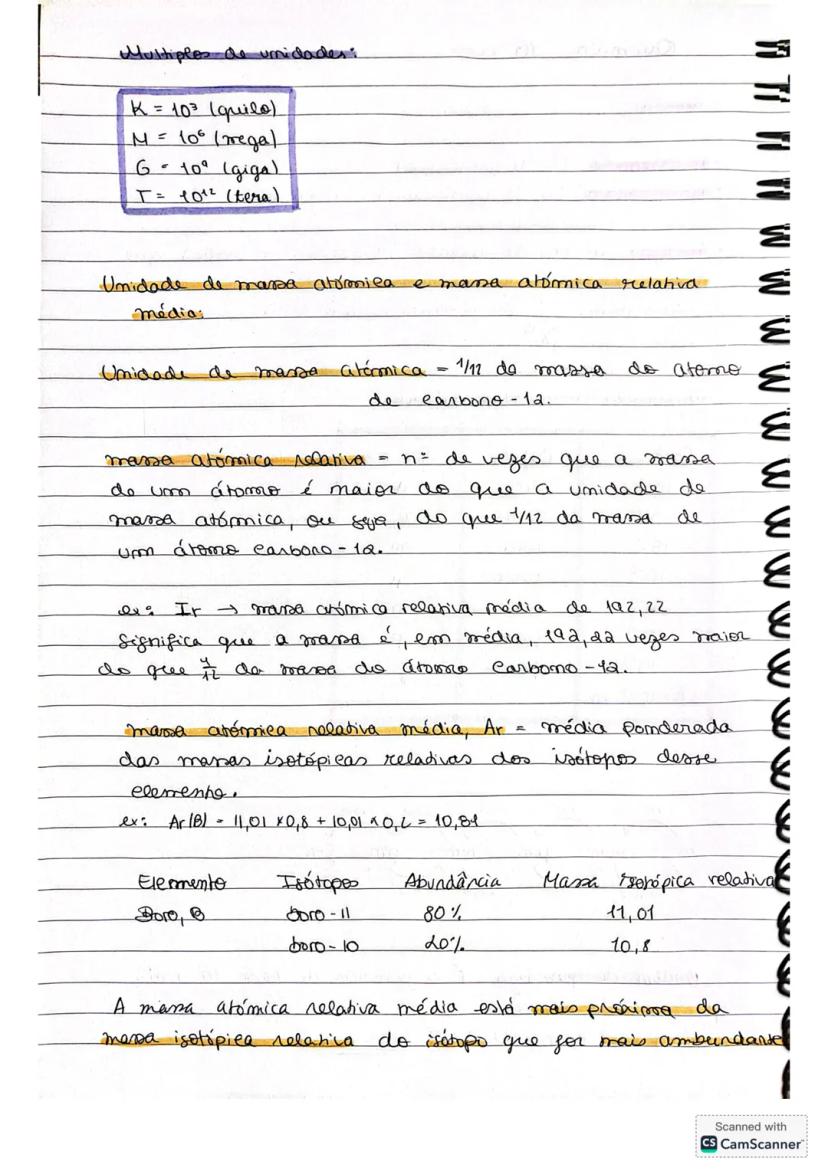 Multiplos de unidades:
K = 10³ (quilo)
M = 10⁶ (mega)
G = 10⁹ (giga)
T = 10¹² (tera)
Unidade de massa atómica e massa atómica relativa
média:
Unidade de massa atómica = 1/12 da massa do atomo
de carbono-12.
massa atómica relativa = nº de vezes que a massa
de um átomo é maior do que a unidade de
massa atómica, ou seja, do que 1/12 da massa de
um átomo carbono-12.
ex: Ir → massa atómica relativa média de 192,22
Significa que a massa é, em média, 192,22 vezes maior
do que 1/12 da massa do átomo carbono-12.
massa atómica relativa média, Ar = média ponderada
das massas isotópicas relativas dos isótopos desse
elemento.
ex: Ar(B) = 11,01 x 0,8 + 10,01 x 0,2 = 10,81
Elemento Isótopos Abundância Massa isotópica relativa
Boro, B boro-11 80% 11,01
boro-10 20% 10,8
A massa atómica relativa média está mais próxima da
massa isotópica relativa do isótopo que for mais ambundante
Scanned with
CS CamScanner